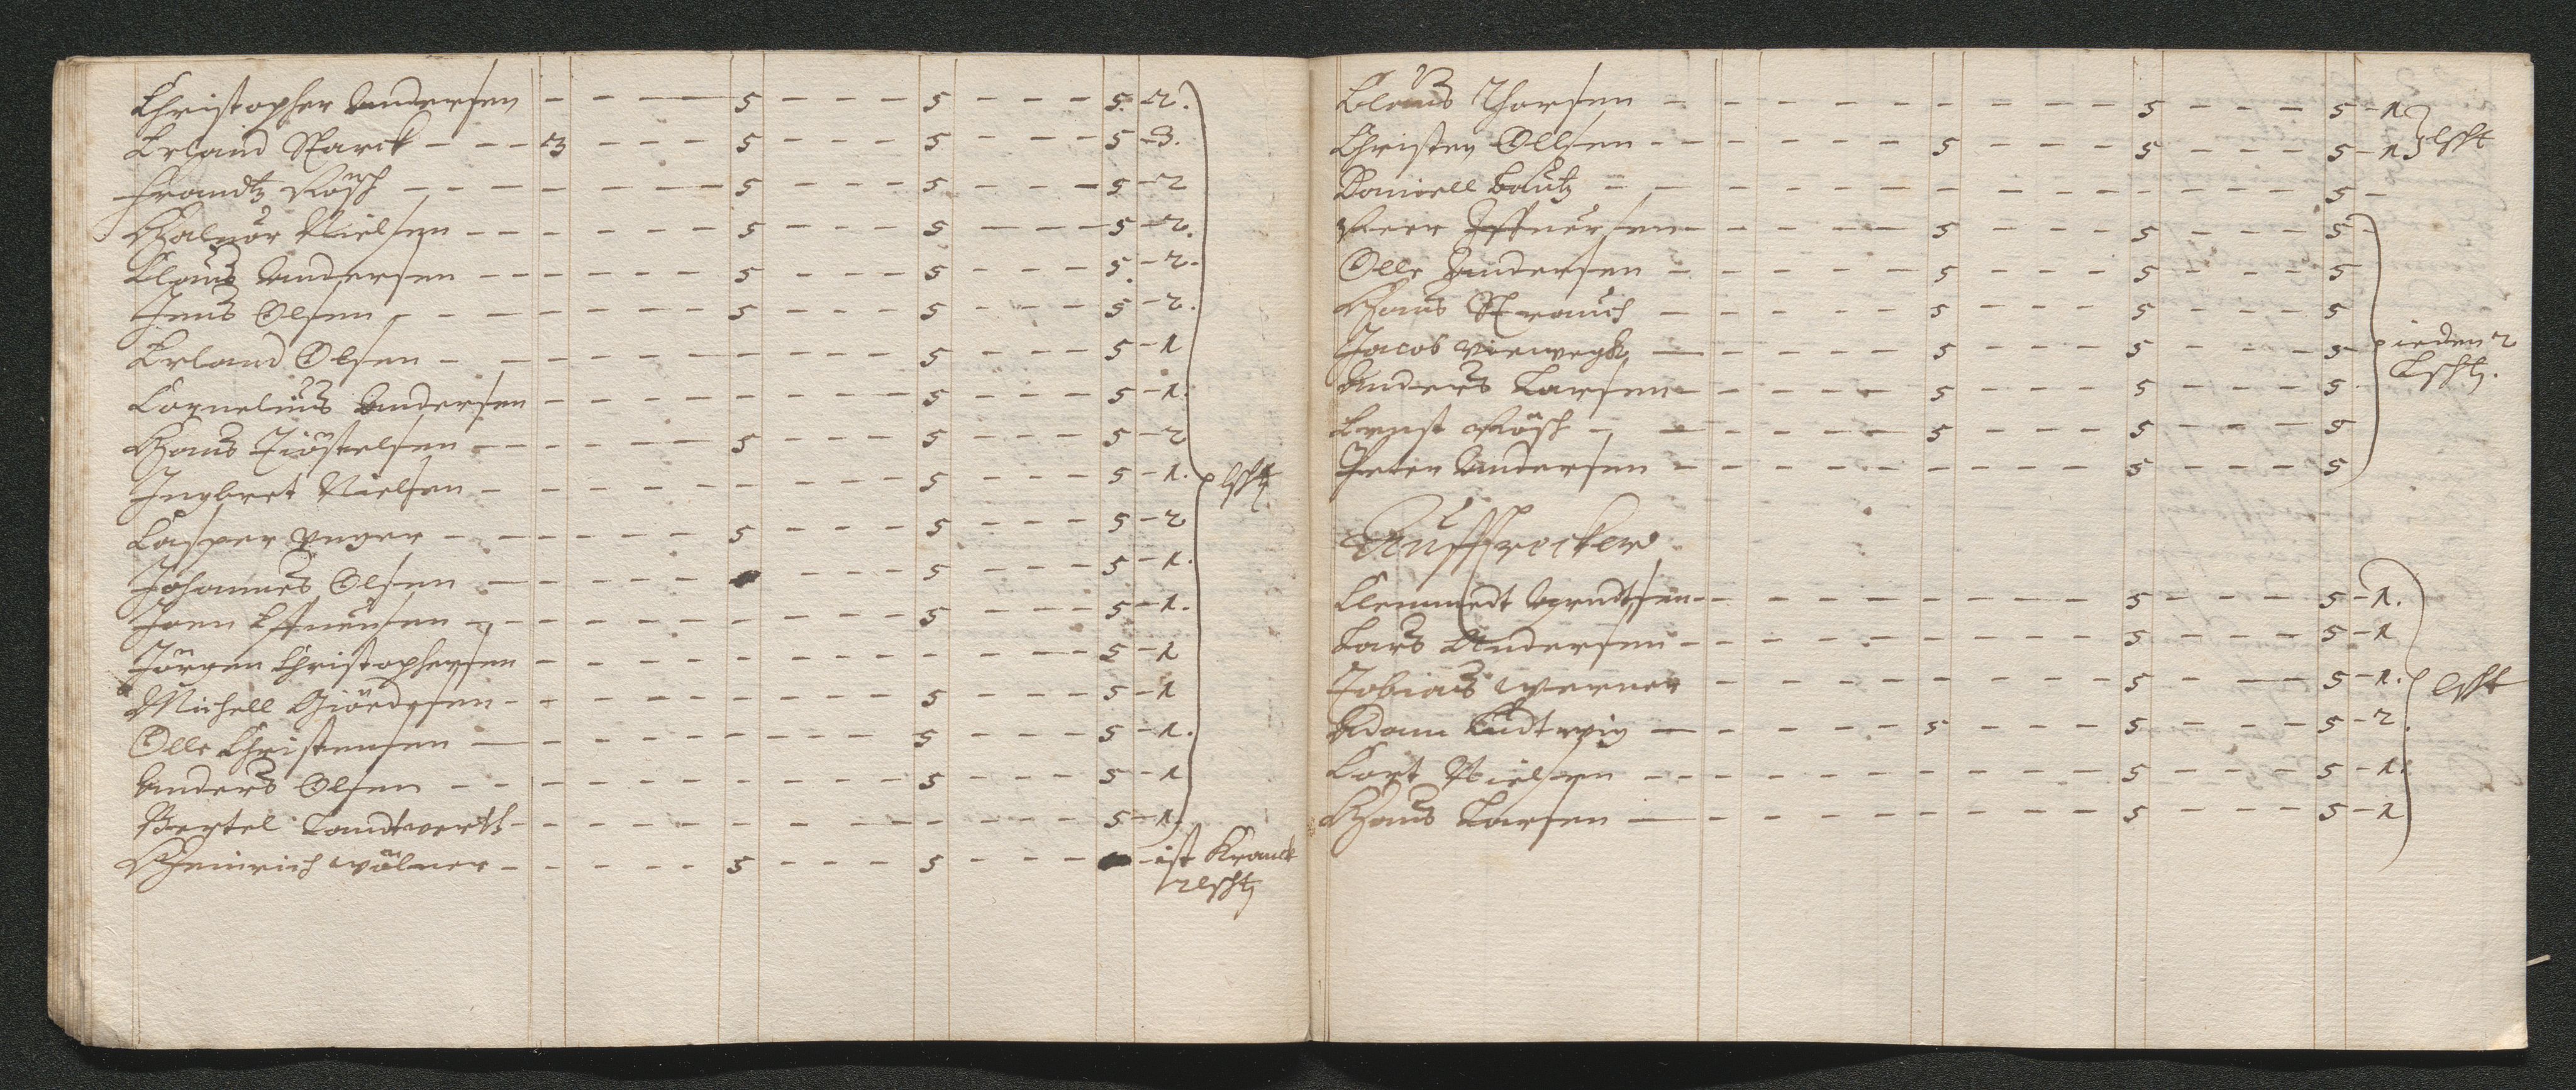 Christopher Andersen - - - 5 - - - 5 - - - 5. - 2.
Erland Starck - - - 3 - - - 5 - - - 5 - - - 5 - 3.
Frandtz Rösch - - - - - - - 5 - - - 5 - - - 5 - 2
Halvor Nielsen - - - - - - 5 - - - 5 - - - 5 - 2.
Claus Andersen - - - - - - 5 - - - 5 - - - 5. - 2.
Jens Olsen - - - - - - - 5 - - - 5 - - - 5 - 2.
Erland Olsen - - - - - - - - - - 5 - - - 5 - 1
Cornelius Andersen - - - - - - - - 5 - - - 5 - 1.
Hans Tiöstelsen - - - - - 5 - - - 5 - - - 5 - 2
Ingbret Nielsen - - - - - - - - - 5 - - - 5 - 1.
lßht
Casper Unger - - - - - - 5 - - - 5 - - - 5 - 2
Johannes Olsen - - - - - - - - 5 - - - 5 - 1.
Joen Effuensen - - - - - - - - - 5 - - - 5 - 1.
Jörgen Christophersen - - - - - - - - - - - 5 - 1
Michell Giördsen - - - - - - - - - 5 - - - 5 - 1
Olle Christensen - - - - - - - - - 5 - - - 5 - 1.
Anders Olsen - - - - - - - - - - 5 - - - 5 - 1
Bertel Landtwerth - - - - - - - - - - - - 5 - 1.
Heinrich Wölner - - - - - 5 - - - 5 - - - - ist Kranck
2 lßht
Claus Thorsen - - - - - - - - - 5 - - - 5 - 1.
Christen Ollsen - - - - - - 5 - - - 5 - - - 5 - 1 lßht
Daniell Bautz - - - - - - - - - - - - - 5 -
Peer Effuersen - - - - - 5 - - - 5 - - - 5 -
Olle Andersen - - - - - 5 - - - 5 - - - 5
Hans Strauch - - - - - 5 - - - 5 - - - 5
Jacob Viewegk - - - - - 5 - - - 5 - - - 5 ieden 2
Anders Larsen - - - - - 5 - - - 5 - - - 5 Lßht.
Ernst Rösch - - - - - 5 - - - 5 - - - 5
Peter Andersen - - - - - - - - - 5 - - - 5
Clemmedt Arndtsen - - - - - - - - 5 - - - 5 - 1.
Lars Andersen - - - - - - - - - 5 - - - 5 - 1
Tobias Werner - - - - - - - - 5 - - - 5 - 1. lßht
Adam Ludtwig - - - - - 5 - - - 5 - - - 5 - 2.
Cort Nielsen - - - - - - - - - 5 - - - 5 - 1.
Hans Larsen - - - - - - - - - 5 5 - 1